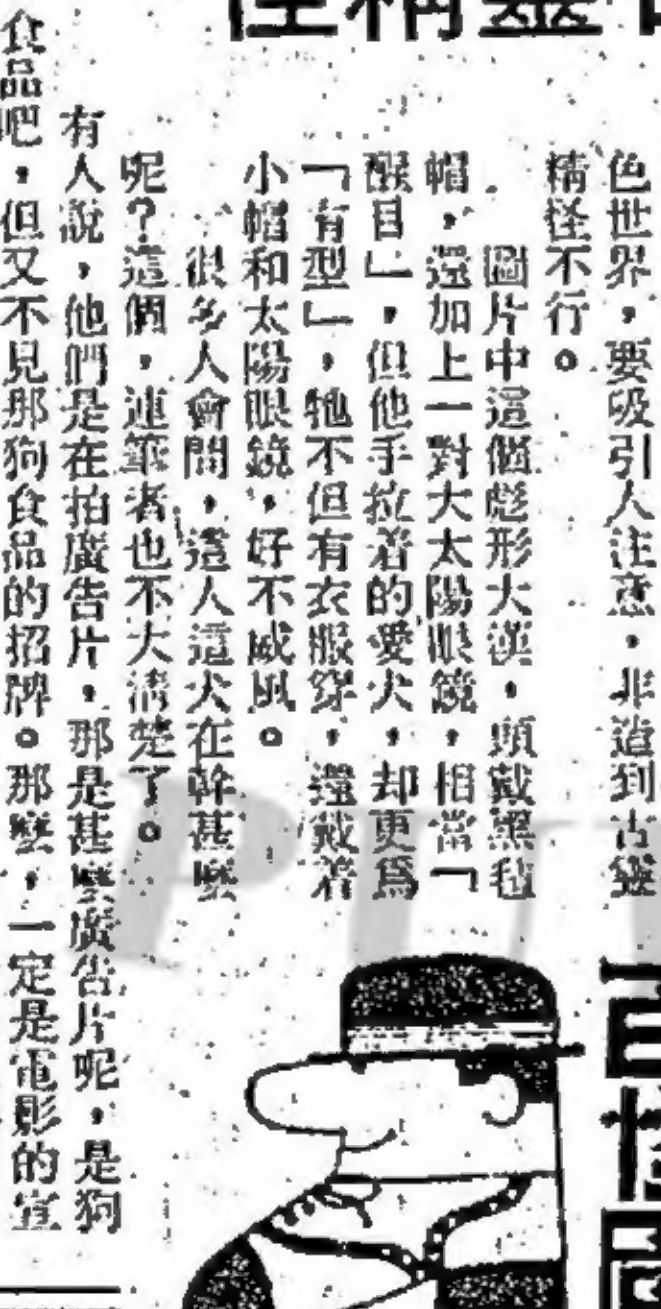 精靈
色世界，要吸引人注意，非造到古靈
精怪不行。
圖片中這個彪形大漢，頭戴黑毡
帽，還加上一對大太陽眼鏡，相當「
醒目」，但他手拉着的愛犬，却更爲
「有型」，牠不但有衣服穿，還戴着
小帽和太陽眼鏡，好不威風。
很多人會問，這人這犬在幹甚麼
呢？這個，連筆者也不大清楚了。
有人說，他們是在拍廣告片，那是甚麼廣告片呢，是狗
食品吧，但又不見那狗食品的招牌。那麼，一定是電影的宣